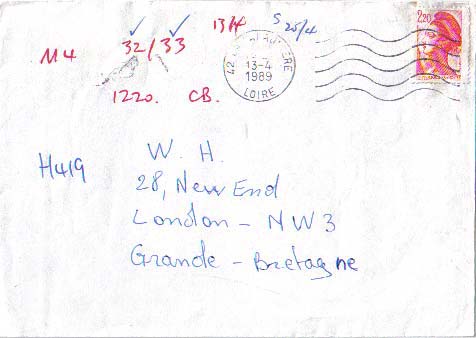 13/4 S 25/4
M4 32/33
1220. CB.
42
13-4
1989
LOIRE
2,20
H419
W. H.
28, New End
London - NW3
Grande - Bretagne